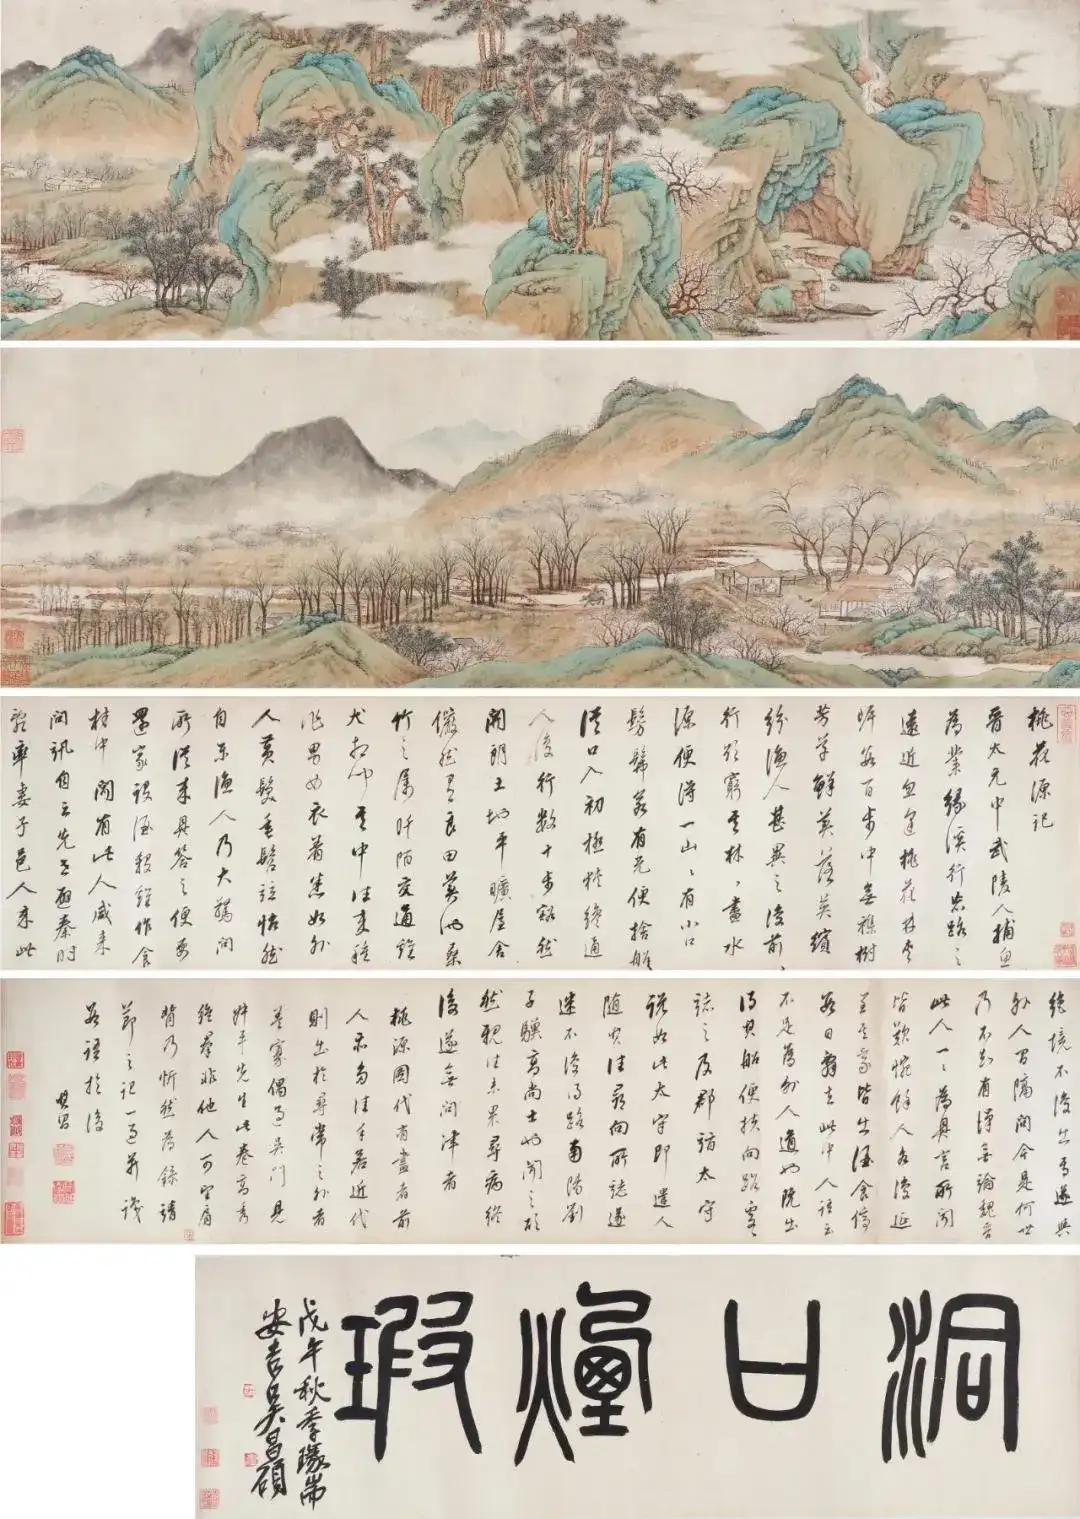 桃花源記
晉太元中武陵人捕魚
為業緣溪行忘路之
遠近忽逢桃花林夾
岸數百步中無雜樹
芳草鮮英落英繽
紛漁人甚異之復前
行欲窮其林々盡水
源便得一山々有小口
髣髴若有光便捨船
從口入初極狹纔通
人復行數十步豁然
開朗土地平曠屋舍
儼然有良田美池桑
竹之屬阡陌交通雞
犬相聞其中往來種
作男女衣著悉如外
人黃髮垂髫並怡然
自樂漁人乃大驚問
所從來具答之便要
還家設酒殺雞作食
村中聞有此人咸來
問訊自云先世避秦時
亂率妻子邑人來此
絕境不復出焉遂與
外人間隔問今是何世
乃不知有漢無論魏晉
此人一一為具言所聞
皆歎惋餘人各復延
至其家皆出酒食停
數日辭去此中人語云
不足為外人道也既出
得其船便扶向路處々
誌之及郡詣太守
說如此太守即遣人
隨其往尋向所誌遂
迷不復得路南陽劉
子驥高尚士也聞之欣
然規往未果尋病終
後遂無問津者
桃源圖代有畫者前
人亦多佳手若近代
則出於尋常之外者
蓋寡偶過吳門見
先生此卷高秀
絕 非他人可望肩
背乃忻然為錄靖
節之記一過并識
數語於後
其昌
洞口煙瑕
戊午秋季
安吉吳昌碩